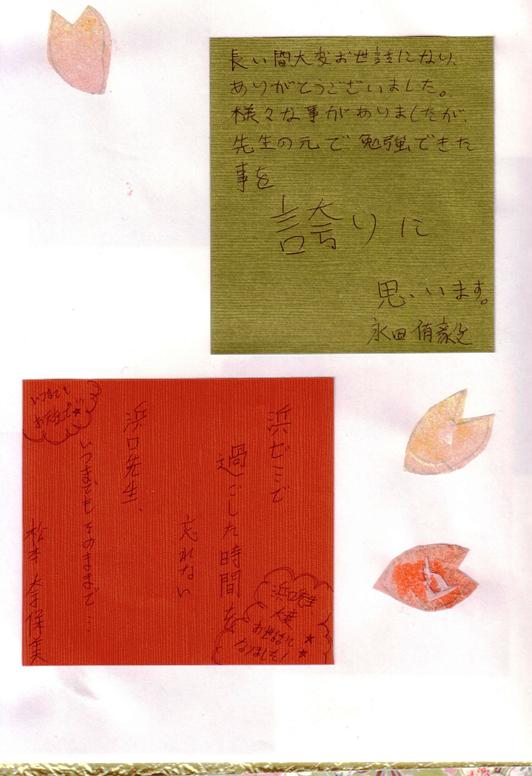 長い間大変お世話になり、
ありがとうございました。
様々な事がありましたが、
先生の元で勉強できた
事を
誇りに
思います。
永田侑毅
浜ゼミで
過ごした時間を
忘れない
浜口先生、
いつまでもそのままで…
松本
保美
いつまでも
お元気で☆
浜口先生
大変
お世話に
なりました!